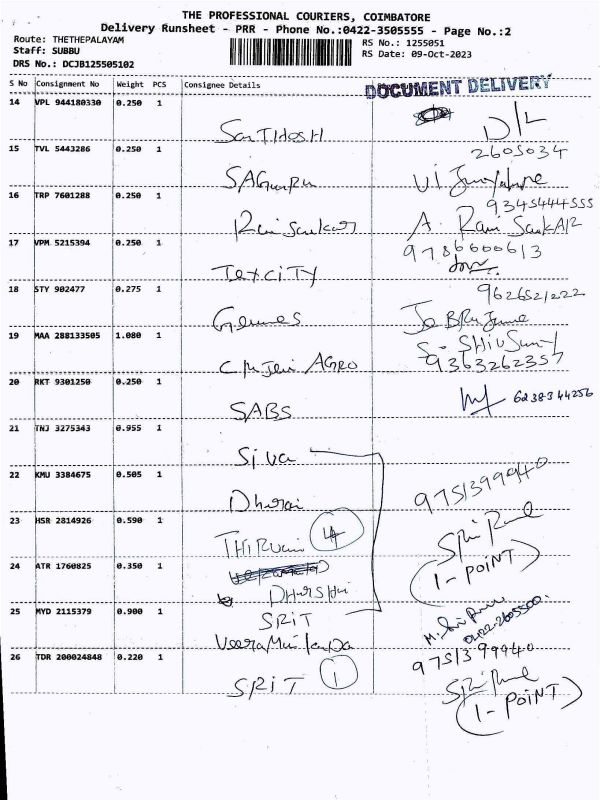 THE PROFESSIONAL COURIERS, COIMBATORE
Delivery Runsheet - PRR - Phone No.:0422-3505555 - Page No.:2
Route: THETHEPALAYAM
Staff: SUBBU
DRS No.: DCJB125505102
RS No.: 1255051
RS Date: 09-Oct-2023
S No Consignment No Weight PCS Consignee Details
DOCUMENT DELIVERY
14 VPL 944180330 0.250 1
SanTHosH D/L
15 TVL 5443286 0.250 1
2605034
SAGuru
16 TRP 7601288 0.250 1
9345444555
A. Ravi SankAR
17 VPM 5215394 0.250 1
9786600613
TexciTY
18 STY 902477 0.275 1
9626521222
19 MAA 288133505 1.080 1
AGRO
9363262357
20 RKT 9301250 0.250 1
SABS
6238344256
21 TNJ 3275343 0.955 1
Siva
22 KMU 3384675 0.505 1
9751399940
23 HSR 2814926 0.590 1
4
24 ATR 1760825 0.350 1
(1-POINT)
DHARSHni
25 MYD 2115379 0.900 1
SRIT
0422-2605500
9751399940
26 TDR 200024848 0.220 1
SRIT 1
(1-POINT)